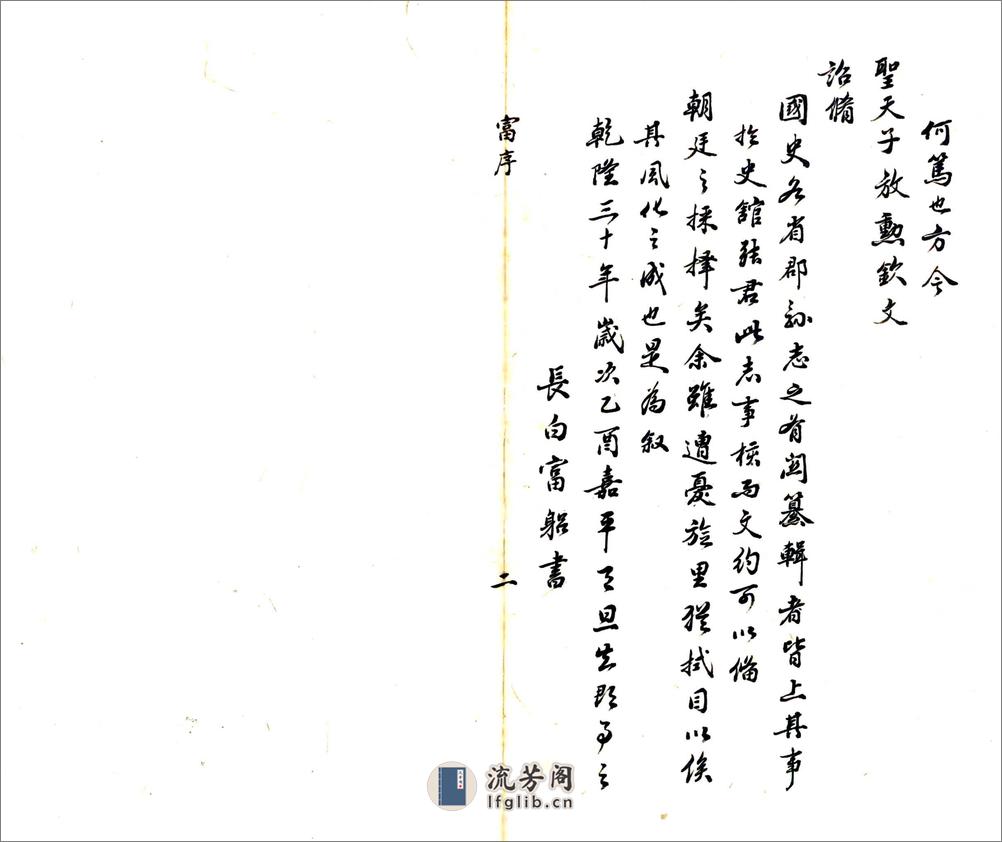 何篤也方今
聖天子放勲欽文
詔脩
國史各省郡縣志之有関纂輯者皆上其事
於史館張君此志事核而文約可以備
朝廷之採擇矣余雖遭憂旋里猶拭目以俟
其風化之成也是為叙
乾隆三十年歲次乙酉嘉平月旦
長白富躳書
富序
二
流芳阁
lfglib.cn